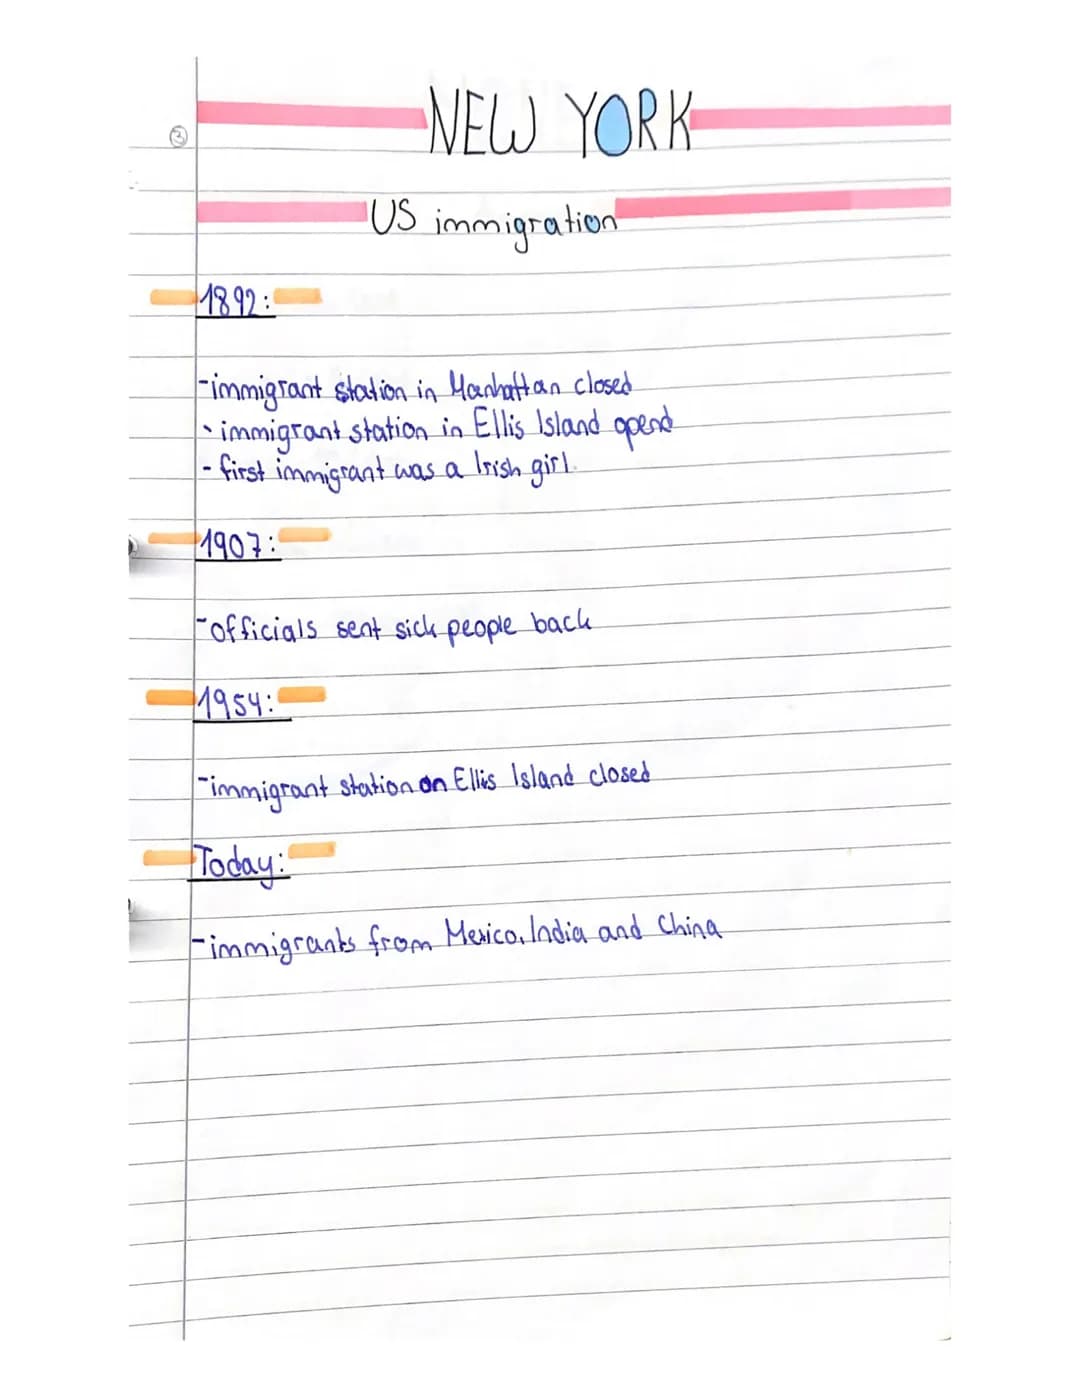 NEW YORK
③
US immigration
1892:
-immigrant station in Manhattan closed
- immigrant station in Ellis Island opend
- first immigrant was a Irish girl.
1907:
-officials sent sick people back
1954:
-immigrant station on Ellis Island closed
Today:
-immigrants from Mexico, India and China